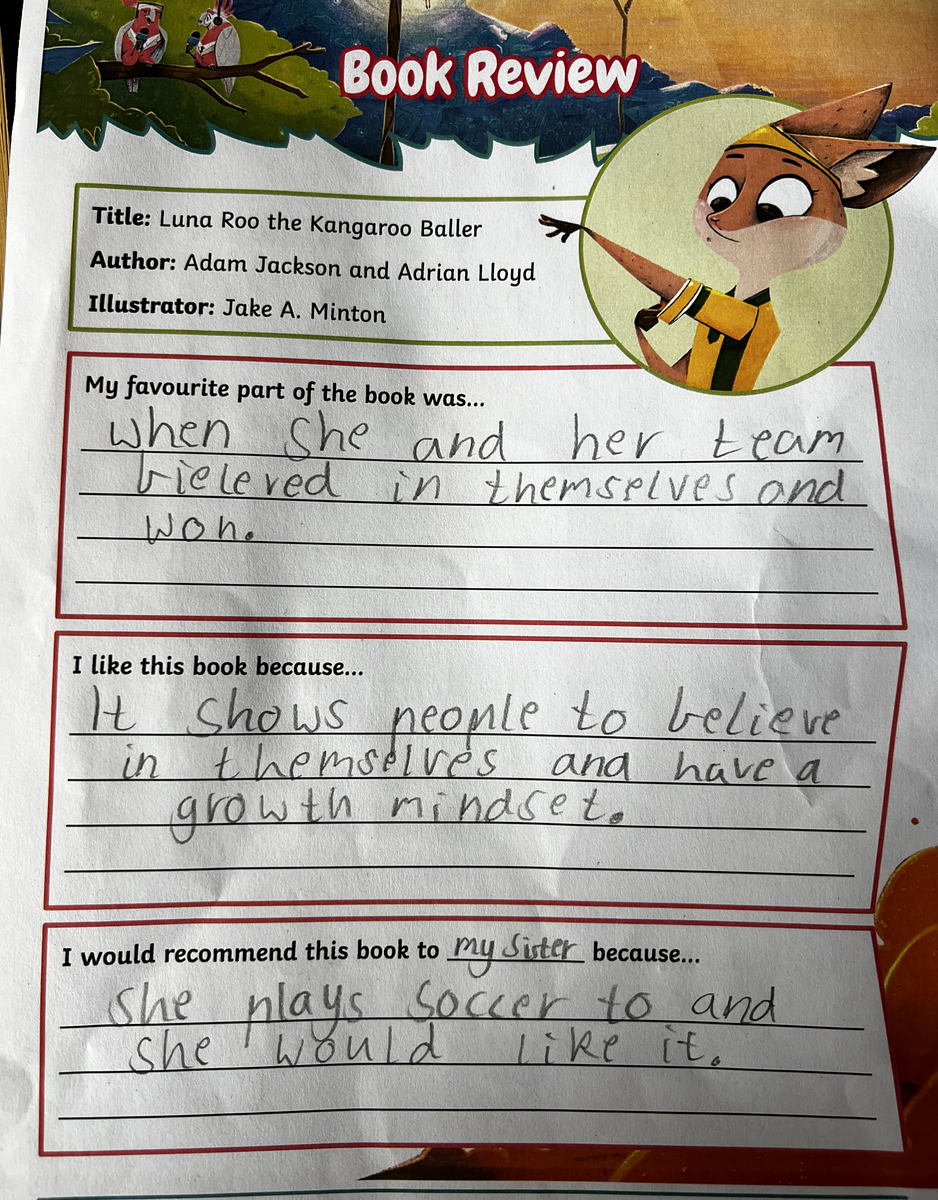 Book Review
Title: Luna Roo the Kangaroo Baller
Author: Adam Jackson and Adrian Lloyd
Illustrator: Jake A. Minton
My favourite part of the book was...
when she and her team
bieleved in themselves and
won.
I like this book because...
It shows people to believe
in themselves and have a
growth mindset.
I would recommend this book to my sister because...
she plays soccer to and
she would like it.